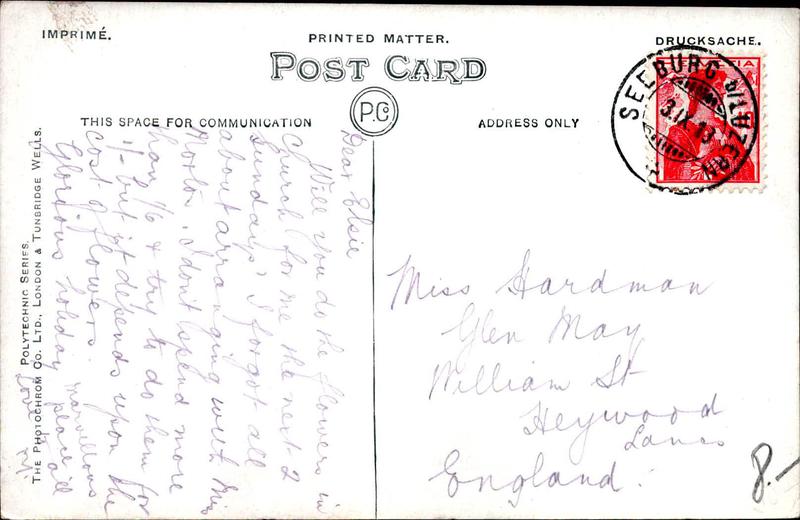 IMPRIMÉ.
PRINTED MATTER.
DRUCKSACHE.
POST CARD
P.C.
THIS SPACE FOR COMMUNICATION
ADDRESS ONLY
SEEBURG b/LUZERN
3.IX.13
Dear Elsie
Will you do the flowers in
Church for me the next 2
Sundays, I forgot all
about arranging with Miss
I don't spend more
than 2/6 & try to do them for
but it depends upon the
cost of flowers.
Glorious holiday marvellous place
Love to all
Miss Hardman
Glen May
William St
Heywood
Lancs
England.
8.-
POLYTECHNIC SERIES.
THE PHOTOCHROM CO. LTD., LONDON & TUNBRIDGE WELLS.